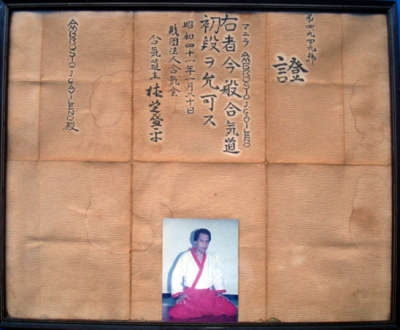 證
マニラ GAVILENO
右者今般合気道
初段ヲ允可ス
昭和四十一年一月二十日
財団法人合気会
合気道主 植芝盛平
GAVILENO 殿